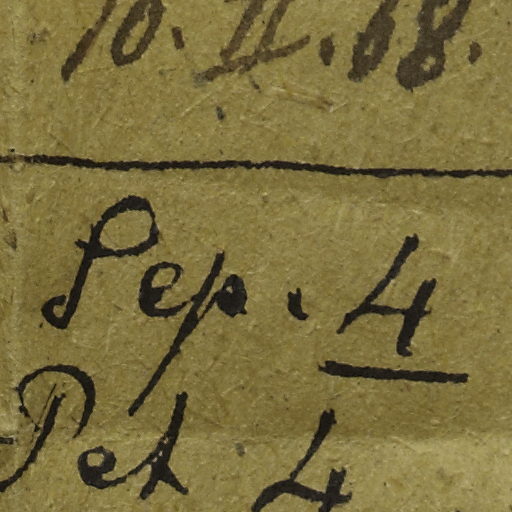 10. II. 68.
Sep. 4
Pet 4